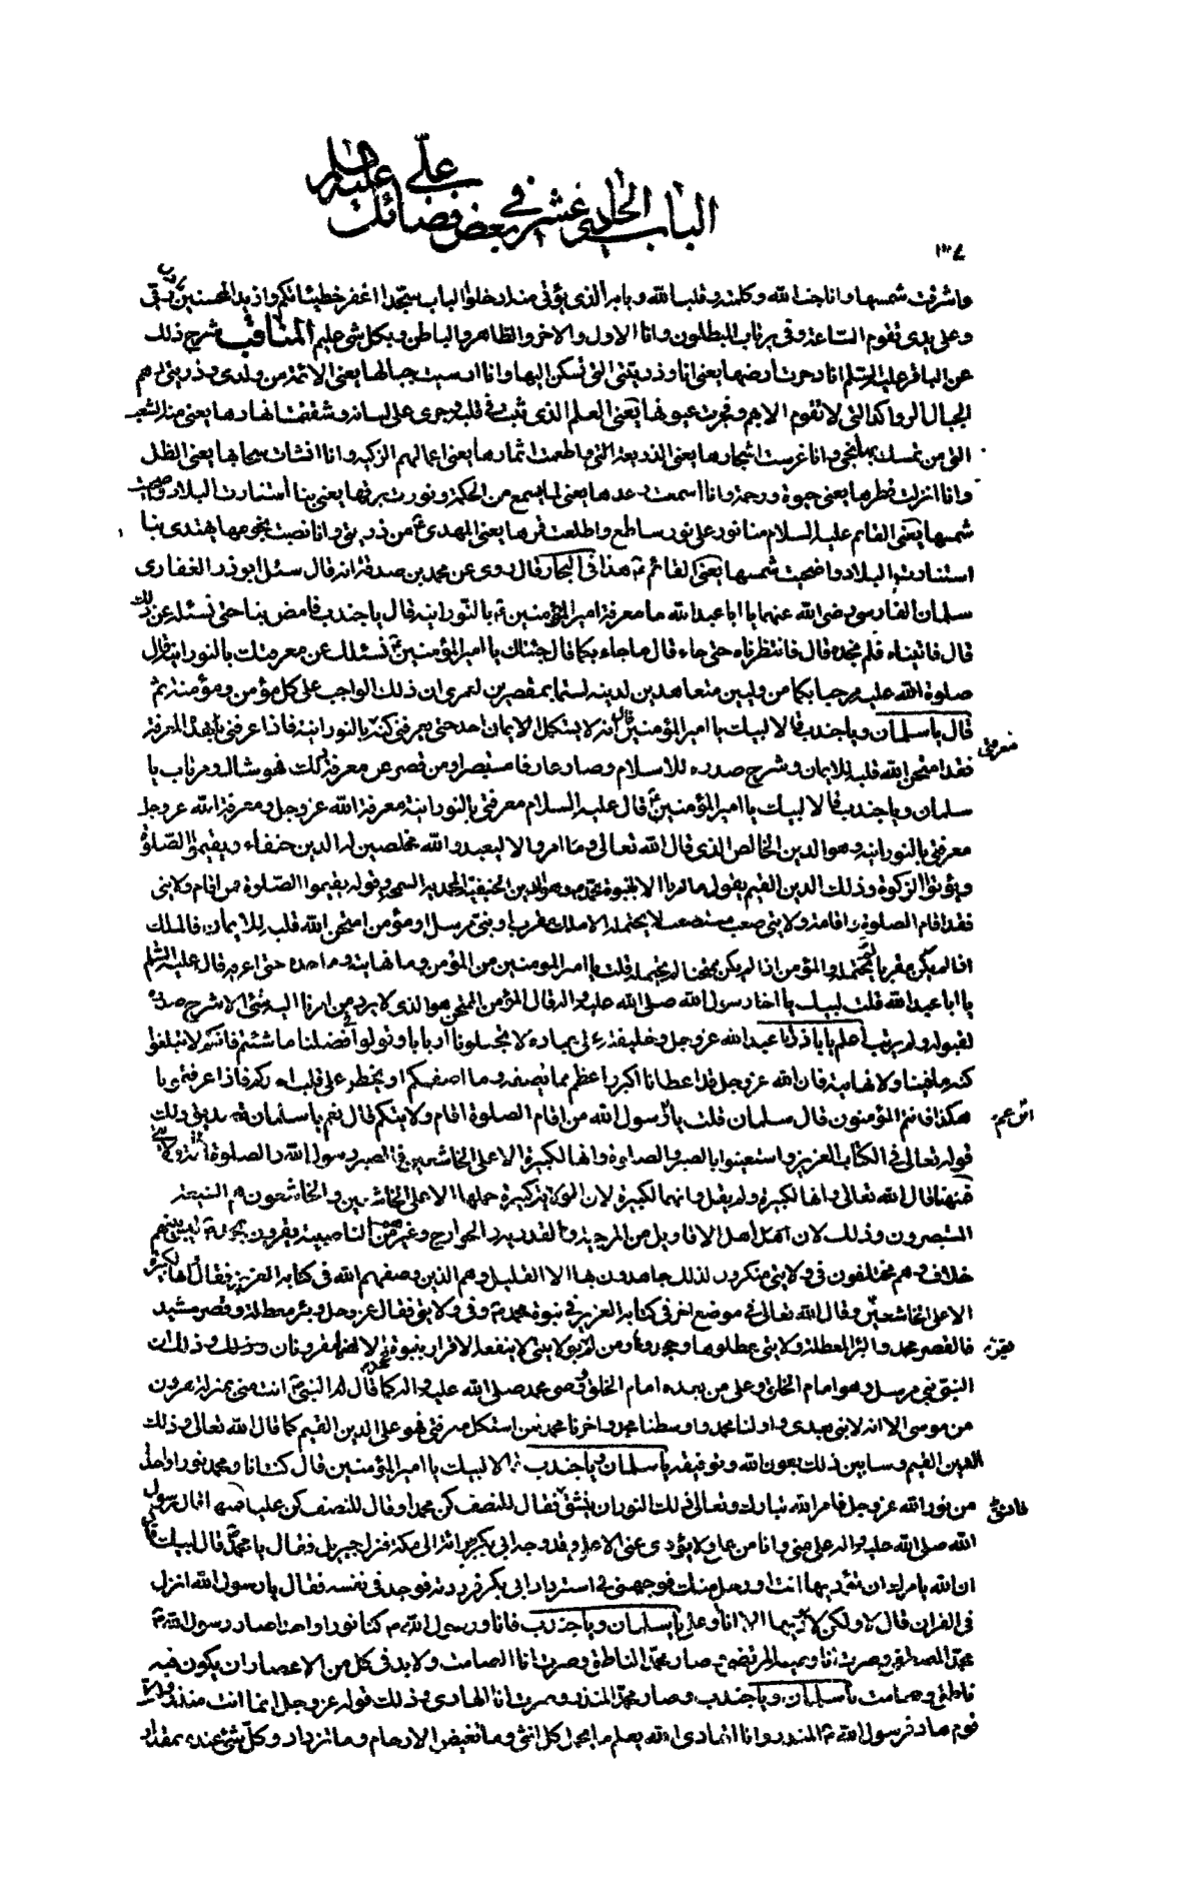 الباب الحادي عشر في بعض فضائل علي عليه السلام
١٣٧
واشرقت شمسها وانا جنب الله وكلمته وقلب الله وبامر الذي يؤتى منه ادخلوا الباب سجدا اغفر خطيئاتكم وازيد المحسنين وبي
وعلى يدي تقوم الساعة وفي يرتاب المبطلون وانا الاول والاخر والظاهر والباطن وبكل شئ عليم المناقب شرح ذلك
عن الباقر عليه السلم انا دحوت ارضها يعني انا وذريتي التي تسكن اليها وانا ارسيت جبالها يعني الائمة من ولدي وذريتي هم
الجبال الرواكد التي لا تقوم الا بهم وفجرت عيونها يعني العلم الذي ثبت في قلبه وجرى على لسانه وشققت انهارها يعني منه الشعب
التي من تمسك بها نجى وانا غرست اشجارها يعني الذرية الطيبة واطعمت ثمارها يعني اعمالهم الزكية وانا انشات سحابها يعني الظل
وانا انزلت قطرها يعني حيوة ورحمة وانا اسمعت رعدها يعني لما يسمع من الحكمة ونورت برقها يعني بنا استنارت البلاد واضحيت
شمسها يعني القائم عليه السلام منا نور على نور ساطع واطلعت قمرها يعني المهدي من ذريتي وانا نصبت نجومها يهتدى بنا
استنارت البلاد واضحيت شمسها يعني القائم هذا في البحار قال روى عن محمد بن صدقة انه قال سئل ابو ذر الغفاري
سلمان الفارسي رضي الله عنهما يا ابا عبد الله ما معرفة امير المؤمنين بالنورانية قال يا جندب فامض بنا حتى نسئله عن ذلك
قال فاتيناه فلم نجده قال فانتظرناه حتى جاء قال ما جاء بكما قال جئناك يا امير المؤمنين نسئلك عن معرفتك بالنورانية قال
صلوة الله عليه مرحبا بكما من وليين متعاهدين لدينه لستما بمقصرين لعمري ان ذلك الواجب على كل مؤمن ومؤمنة ثم
قال يا سلمان ويا جندب قالا لبيك يا امير المؤمنين قال انه لا يستكمل الايمان احد حتى يعرفني كنه بالنورانية فاذا عرفني بهذا المعرفة
معرفتي
فقد امتحن الله قلبه للايمان وشرح صدره للاسلام وصار عارفا مستبصرا ومن قصر عن معرفة ذلك فهو شاك ومرتاب يا
سلمان ويا جندب قالا لبيك يا امير المؤمنين قال عليه السلام معرفتي بالنورانية معرفة الله عز وجل ومعرفة الله عز وجل
معرفتي بالنورانية وهو الدين الخالص الذي قال الله تعالى وما امروا الا ليعبدوا الله مخلصين له الدين حنفاء ويقيموا الصلوة
ويؤتوا الزكوة وذلك الدين القيم يقول ما امروا الا بنبوة محمد وهو الدين الحنيفية المحمدية السمحة وقوله يقيموا الصلوة فمن اقام ولايتي
فقد اقام الصلوة واقامة ولايتي صعب مستصعب لا يحتمله الا ملك مقرب او نبي مرسل او مؤمن امتحن الله قلبه للايمان فالملك
اذا لم يكن مقربا لم يحتمله والمؤمن اذا لم يكن ممتحنا لم يحتمله قلت يا امير المومنين من المؤمن وما نهايته وما حده حتى اعرفه قال عليه السلم
يا ابا عبد الله قلت لبيك يا اخا رسول الله صلى الله عليه واله قال المؤمن الممتحن هو الذي لا يرد من امرنا اليه شئ الا شرح صدره
لقبوله ولم يرتب اعلم يا باذر انا عبد الله عز وجل وخليفته على عباده لا تجعلونا اربابا وقولوا في فضلنا ما شئتم فانكم لا تبلغوا
كنه ما فينا ولا نهايته فان الله عز وجل قد اعطانا اكبر واعظم مما يصفه وما اصفكم او يخطر على قلب احدكم فاذا عرفتمونا
هكذا فانتم المؤمنون قال سلمان قلت يا اخا رسول الله من اقام الصلوة اقام ولايتكم قال نعم يا سلمان تصديق ذلك
قوله تعالى في الكتاب العزيز واستعينوا بالصبر والصلوة وانها لكبيرة الا على الخاشعين فالصبر رسول الله والصلوة اقامة ولايتي
فمنها قال الله تعالى وانها لكبيرة ولم يقل وانهما لكبيرة لان الولاية كبيرة حملها الا على الخاشعين والخاشعون هم الشيعة
المستبصرون وذلك لان اهل الاقاويل من المرجئة والقدرية والخوارج وغيرهم من الناصبية يقرون بمحمد ليس بينهم
خلاف وهم مختلفون في ولايتي منكرون لذلك جاحدون بها الا القليل وهم الذين وصفهم الله في كتابه العزيز فقال انها لكبيرة
الا على الخاشعين وقال الله تعالى في موضع اخر في كتابه العزيز في نبوة محمد وفي ولايتي فقال عز وجل وبئر معطلة وقصر مشيد
فالقصر محمد والبئر المعطلة ولايتي عطلوها وجحدوها ومن لم يقر بولايتي لا ينفعه الاقرار بنبوة محمد الا انهما مقرونان وذلك ان
النبي نبي مرسل وهو امام الخلق وعلي من بعده امام الخلق ووصي محمد صلى الله عليه واله كما قال له النبي انت مني بمنزلة هرون
من موسى الا انه لا نبي بعدي واولنا محمد واوسطنا محمد واخرنا محمد فمن استكمل معرفتي فهو على الدين القيم كما قال الله تعالى وذلك
الدين القيم وسابين ذلك بعون الله وتوفيقه يا سلمان ويا جندب قالا لبيك يا امير المؤمنين قال كنت انا ومحمد نورا واحدا
من نور الله عز وجل فامر الله تبارك وتعالى ذلك النور ان ينشق فقال للنصف كن محمدا وقال للنصف كن عليا فمنها قال رسول
الله صلى الله عليه واله علي مني وانا من علي ولا يؤدي عني الا علي وقد وجه ابي بكر ببراءة الى مكة فنزل جبريل فقال يا محمد قال لبيك قال
ان الله يامرك ان تؤديها انت او رجل منك فوجهني في استرداد ابي بكر فرددته فوجد في نفسه فقال يا رسول الله انزل
في القران قال لا ولكن لا يؤديها الا انا وعلي يا سلمان ويا جندب فانا ورسول الله كنا نورا واحدا صار رسول الله
محمد المصطفى وصرت انا وصيه المرتضى صار محمد الناطق وصرت انا الصامت ولا بد في كل من الاعصار ان يكون فيه
ناطق وصامت يا سلمان ويا جندب وصار محمد المنذر وصرت انا الهادي وذلك قوله عز وجل انما انت منذر ولكل
قوم هاد فرسول الله المنذر وانا الهادي الله يعلم ما تحمل كل انثى وما تغيض الارحام وما تزداد وكل شئ عنده بمقدار